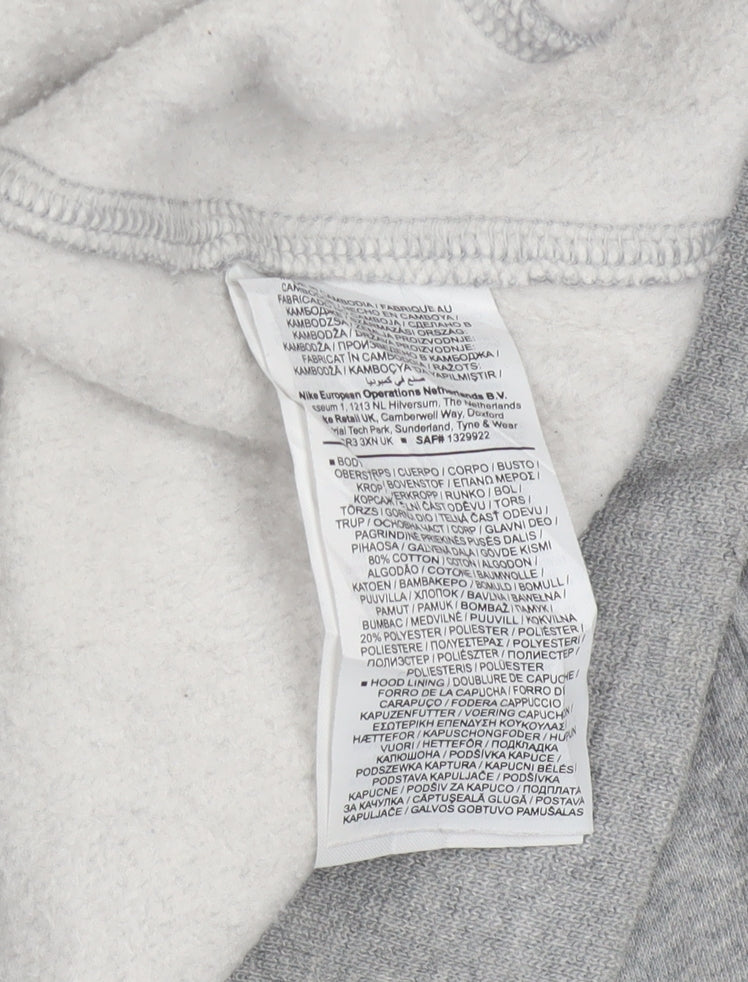 CAMBODIA / FABRIQUE AU
FABRICADO HECHO EN CAMBOYA /
CAMBOJA / СДЕЛАНО В
KAMBODZSA SZÁRMAZÁSI ORSZÁG:
KAMBODŽA / DRŽAVA PROIZVODNJE:
KAMBODŽA / В КАМБОДЖА /
FABRICAT ÎN / RAŽOTS:
KAMBODŽA / KAMBOÇYA YAPILMIŞTIR /
صنع في كمبوديا
Nike European Operations Netherlands B.V.
1, 1213 NL Hilversum, The Netherlands
Retail UK, Camberwell Way, Doxford
Tech Park, Sunderland, Tyne & Wear
SR3 3XN UK ■ SAF# 1329922
■ BODY
/ CUERPO / CORPO / BUSTO /
KROP / BOVENSTOF / ΕΠΑΝΩ ΜΕΡΟΣ /
RUNKO / BOL /
TÖRZS / GORNJI DIO / TELNÁ ČASŤ ODEVU /
TRUP / ОСНОВНА ЧАСТ / CORP / GLAVNI DEO /
PAGRINDINĖ PRIEKINĖS PUSĖS DALIS /
PIHAOSA / GALVENĀ DAĻA / GÖVDE KISMI
80% COTTON / COTON / ALGODÓN /
ALGODÃO / COTONE / BAUMWOLLE /
KATOEN / ΒΑΜΒΑΚΕΡΟ / BOMULD / BOMULL /
PUUVILLA / ХЛОПОК / BAVLNA / BAWEŁNA /
PAMUT / PAMUK / BOMBAŽ / ПАМУК /
BUMBAC / MEDVILNĖ / PUUVILL / KOKVILNA
20% POLYESTER / POLIÉSTER /
POLIESTERE / ΠΟΛΥΕΣΤΕΡΑΣ / POLYESTERI /
ПОЛИЭСТЕР / POLIÉSZTER / ПОЛИЕСТЕР /
POLIESTERIS / POLÜESTER
■ HOOD LINING / DOUBLURE DE CAPUCHE /
FORRO DE LA CAPUCHA / FORRO DI
CARAPUÇO / FODERA CAPPUCCIO
KAPUZENFUTTER / VOERING CAPUCHON /
ΕΣΩΤΕΡΙΚΗ ΕΠΕΝΔΥΣΗ ΚΟΥΚΟΥΛΑΣ /
HÆTTEFOR / KAPUSCHONGFODER /
VUORI / HETTEFÔR / ПОДКЛАДКА
КАПЮШОНА / PODŠÍVKA KAPUCE /
PODSZEWKA KAPTURA / KAPUCNI BÉLÉS /
PODSTAVA KAPULJAČE / PODŠÍVKA
KAPUCNE / PODŠIV ZA KAPUCO / ПОДПЛАТА
ЗА КАЧУЛКА / CĂPTUȘEALĂ GLUGĂ / POSTAVA
KAPULJAČE / GALVOS GOBTUVO PAMUŠALAS